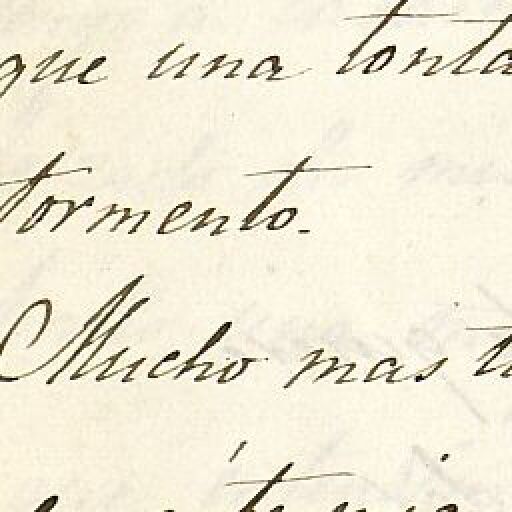 que una tonta
tormento.
Mucho mas